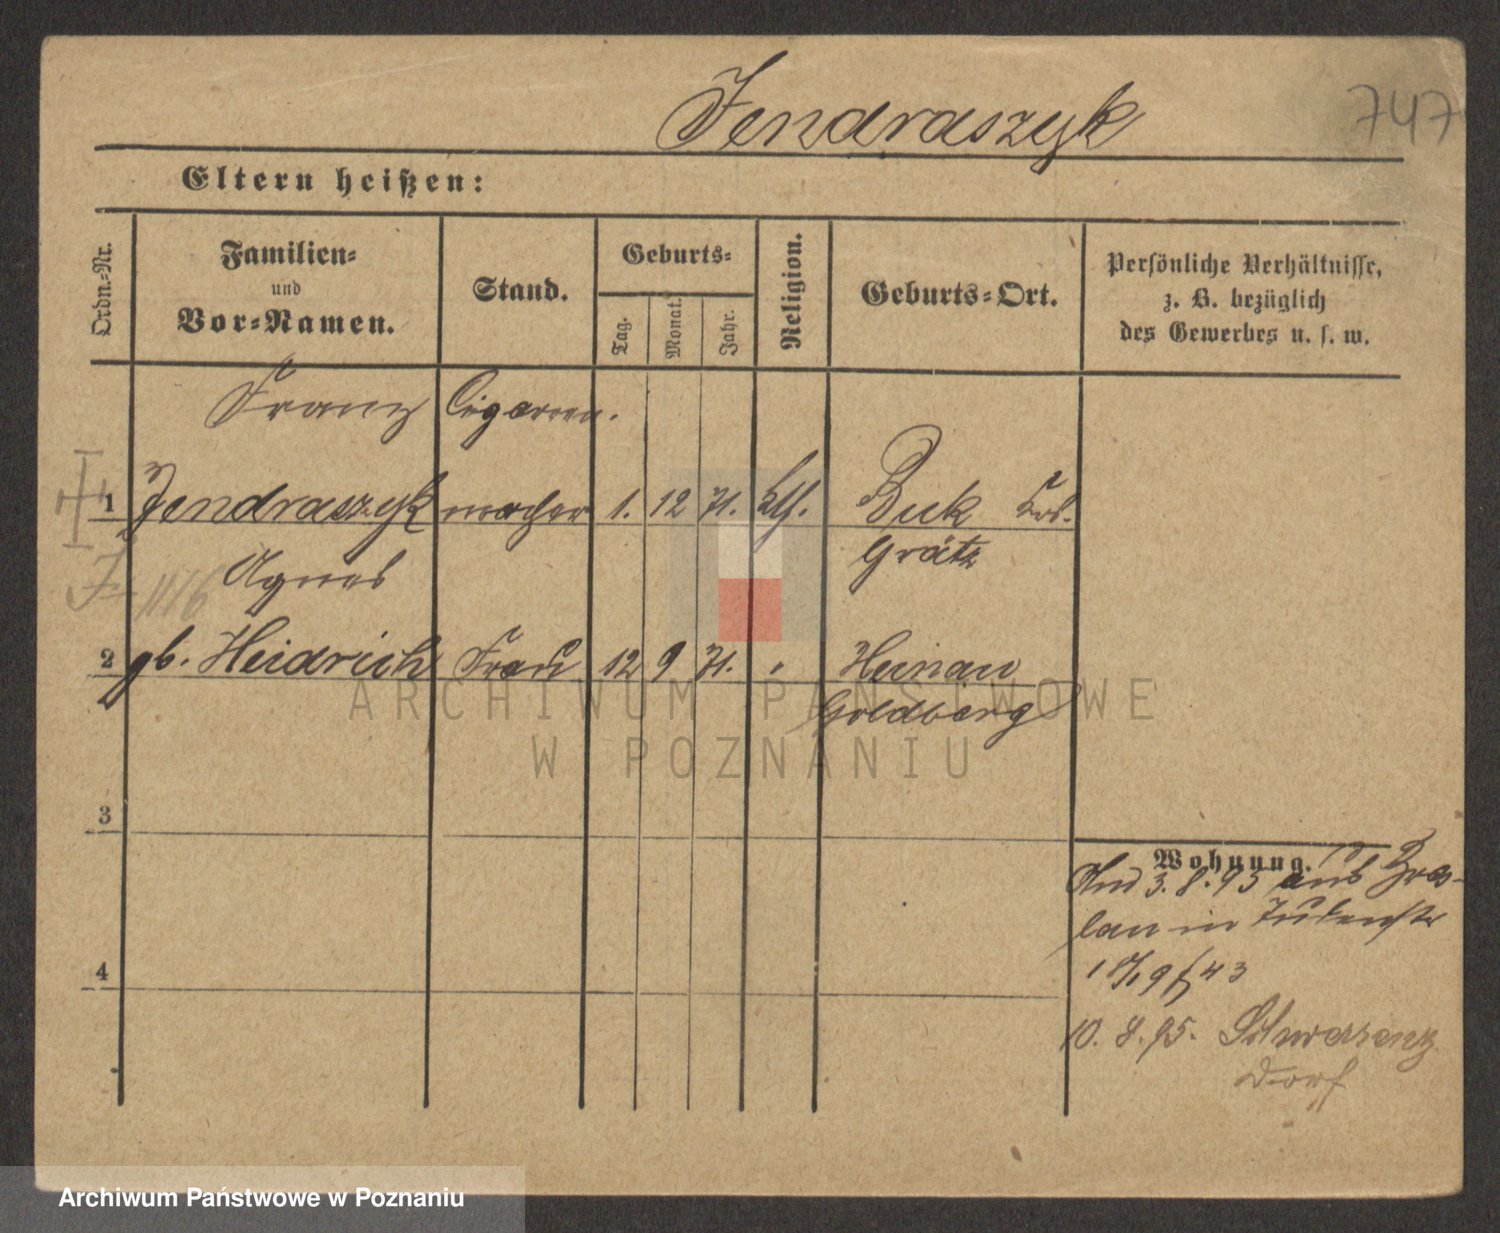 Jendraszyk
747
Eltern heißen:
Ordn.-Nr.
Familien-
und
Vor-Namen.
Stand.
Geburts-
Tag.
Monat.
Jahr.
Religion.
Geburts-Ort.
Persönliche Verhältnisse,
z. B. bezüglich
des Gewerbes u. s. w.
Franz Cigarren.
1 Jendraszyk macher 1. 12 71. kth. Buk
Grätz
Agnes
2 gb. Heidrich Frau 12 9 71. Heinau
Goldberg
3
4
Wohnung.
3.8.93 aus Bres-
lau in
10.8.95. Schwersenz
Dorf
ARCHIWUM PAŃSTWOWE
W POZNANIU
Archiwum Państwowe w Poznaniu